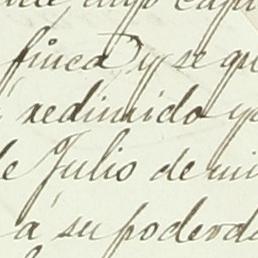 finca) y se qu
redimido y
de Julio de mi
á su poderda